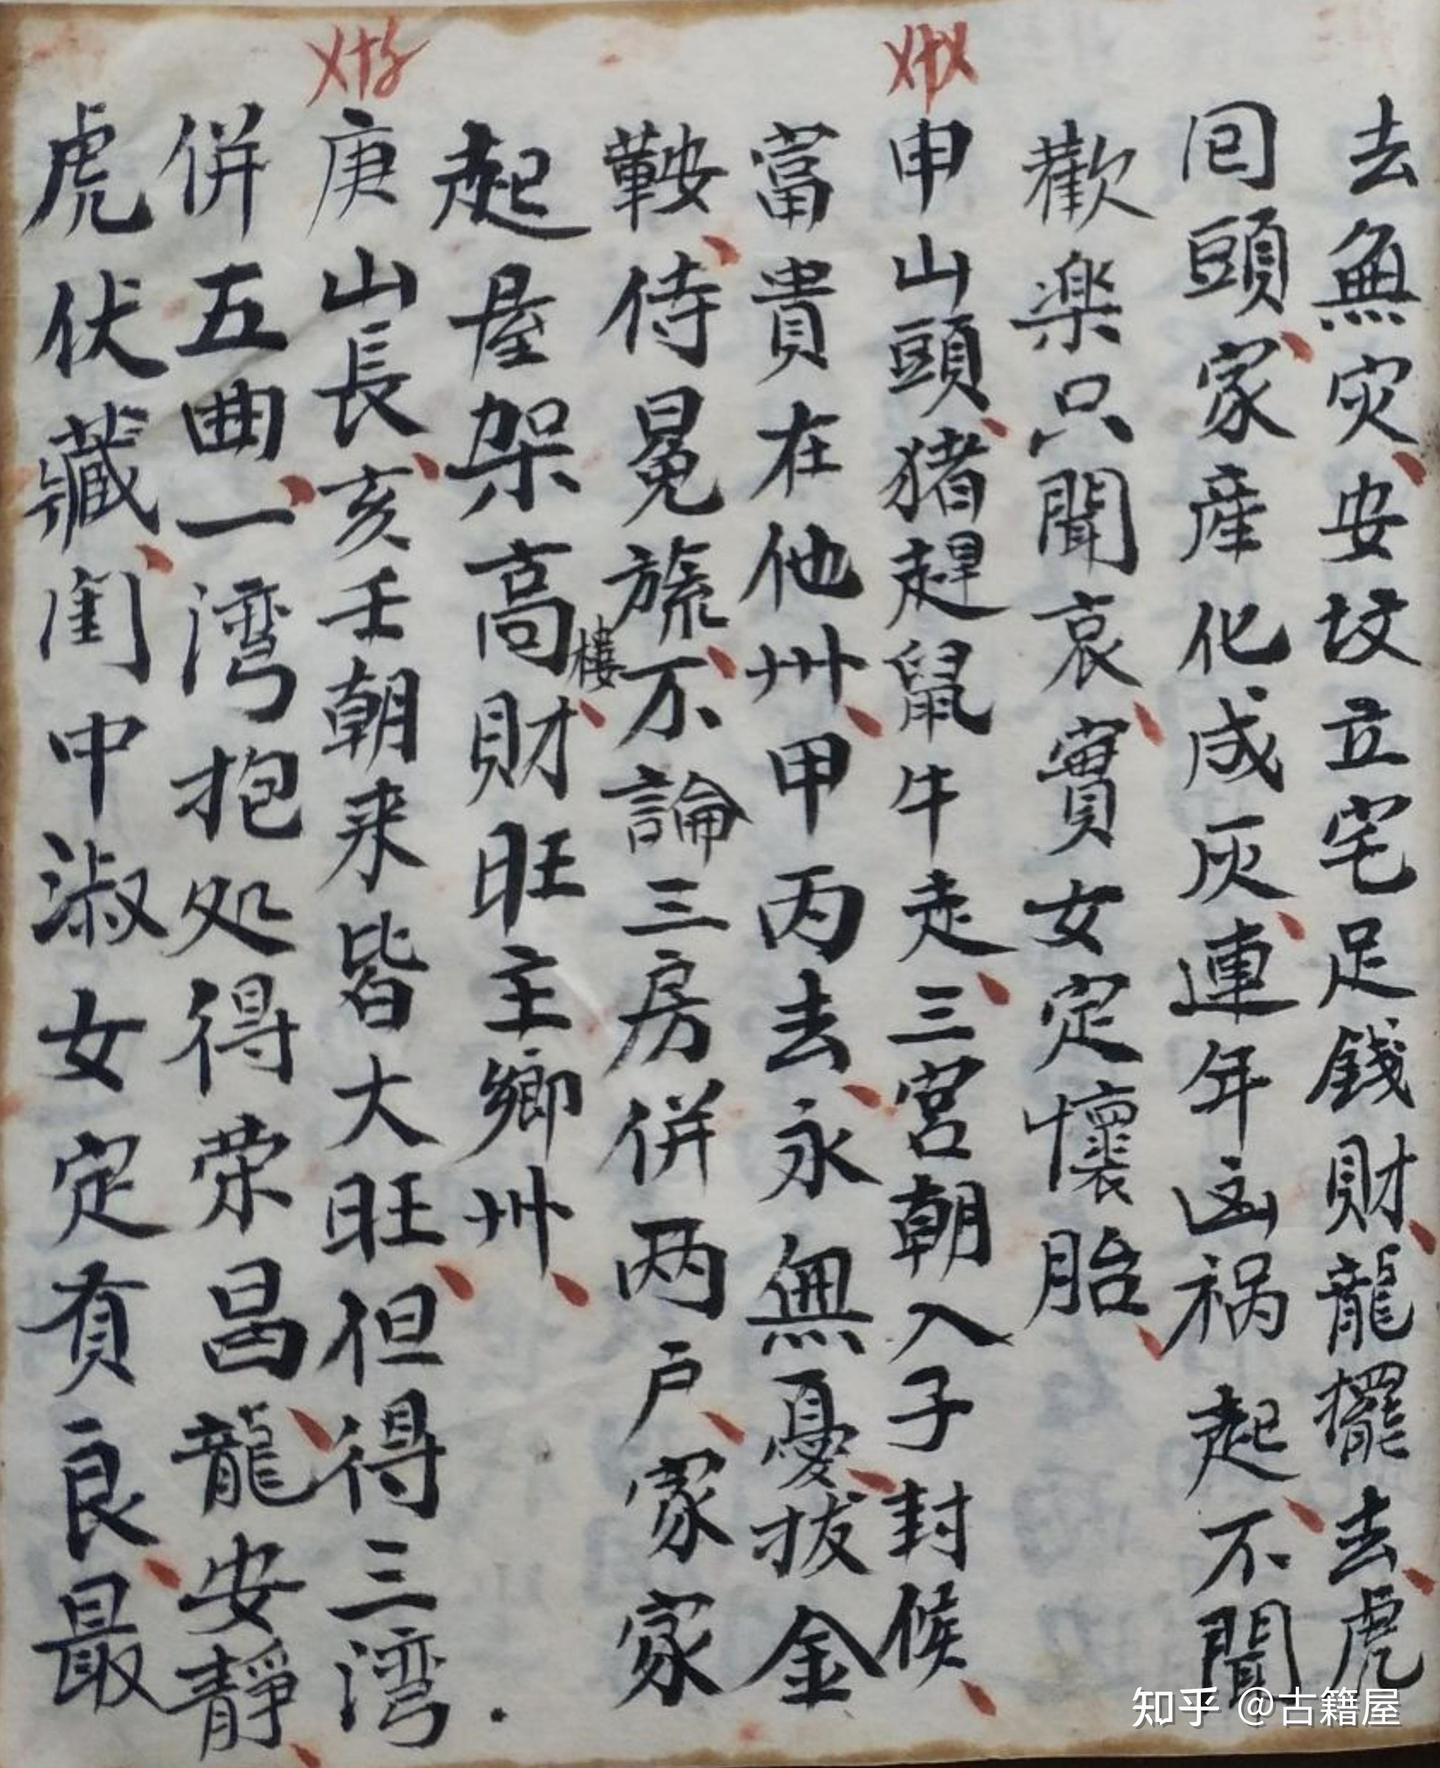 去無灾安坟立宅足錢財龍擺去虎
囘頭家産化成灰連年凶祸起不聞
歡楽只聞哀實女定懷胎
申山頭猪趕鼠牛走三宫朝入子封候
富貴在他卅甲丙去永無憂拔金
鞍侍冕旒不論三房併两户家家
起屋架高楼財旺主鄉卅
庚山長亥壬朝来皆大旺但得三湾
併五曲一湾抱処得荣昌龍安靜
虎伏藏闺中淑女定有良最
知乎 @古籍屋